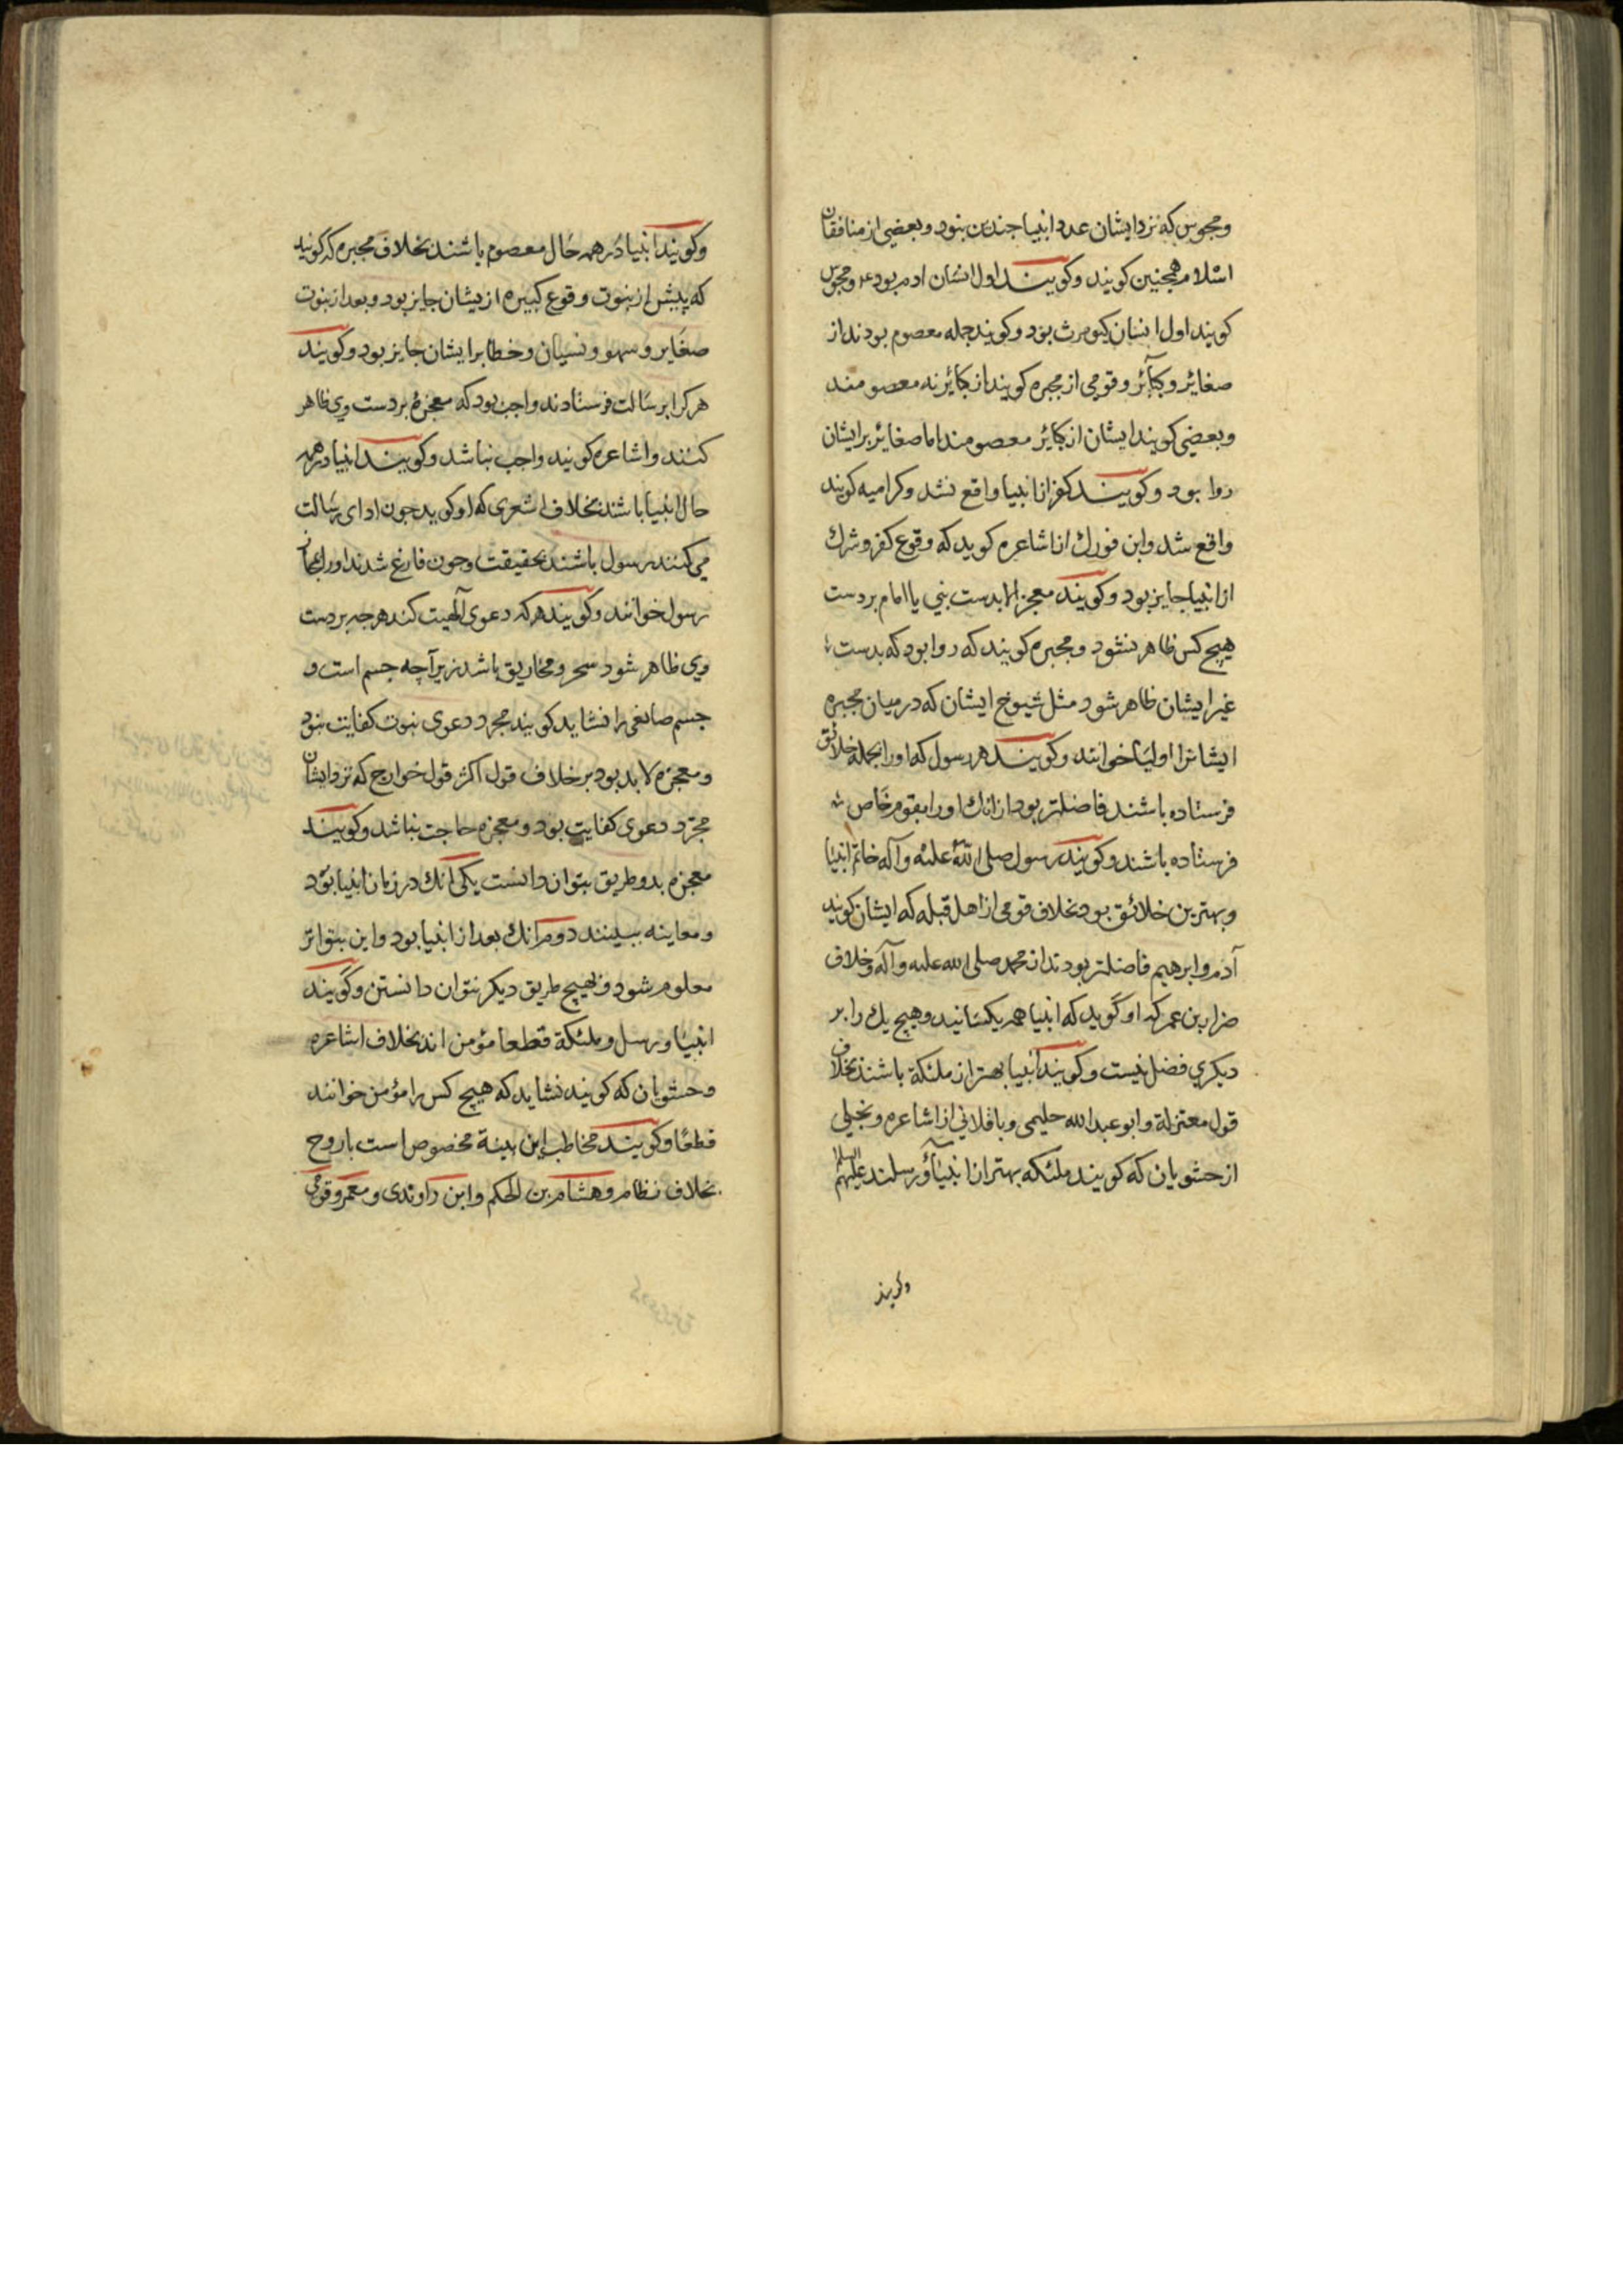 ومجوس که نزد ایشان عدد انبیا چندین نبود وبعضی از منافقان
اسلام همچنین کویند وکویند اول انسان ادم بود ومجوس
کویند اول انسان کیومرث بود وکویند جمله معصوم بودند از
صغائر وکبائر وقومی از مجبره کویند از کبائر نه معصومند
وبعضی کویند ایشان از کبائر معصومند اما صغائر بر ایشان
روا بود وکویند کفر از انبیا واقع نشد وکرامیه کویند
واقع شد وابن فورك از اشاعره کوید که وقوع کفر وشرك
از انبیا جایز بود وکویند معجز الا بدست نبی یا امام بر دست
هیچ کس ظاهر نشود ومجبره کویند که روا بود که بدست
غیر ایشان ظاهر شود مثل شیوخ ایشان که در میان مجبره
ایشانرا اولیا خوانند وکویند هر رسول که اورا بجمله خلائق
فرستاده باشند فاضلتر بود از انك اورا بقوم خاص
فرستاده باشند وکویند رسول صلی الله علیه وآله خاتم انبیا
وبهترین خلائق بود بخلاف قومی از اهل قبله که ایشان کویند
آدم وابرهیم فاضلتر بودند از محمد صلی الله علیه وآله وخلاف
ضرار بن عمر که او گوید که انبیا همه یکسانند وهیچ یك را بر
دیکری فضل نیست وکویند انبیا بهتر از ملئکة باشند بخلاف
قول معتزلة وابو عبد الله حلیمی وباقلانی از اشاعره وبجیلی
از حشویان که کویند ملئکه بهتر از انبیآؤ رسلند علیهم السلم
وکویند
وکویند انبیا در همه حال معصوم باشند بخلاف مجبره که کویند
که پیش از نبوت وقوع کبیره ازیشان جایز بود وبعد از نبوت
صغایر وسهو ونسیان وخطا بر ایشان جایز بود وکویند
هر کرا برسالت فرستادند واجب بود که معجزه بر دست وی ظاهر
کنند واشاعره کویند واجب نباشد وکویند انبیا در همه
حال انبیا باشند بخلاف اشعری که او کوید چون ادای رسالت
می کنند رسول باشند بحقیقت وچون فارغ شدند اورا بمجاز
رسول خوانند وکویند هر که دعوی آلهیت کند هر چه بر دست
وی ظاهر شود سحر ومخاریق باشد زیرآچه جسم است و
جسم صانعی را نشاید کویند مجرد دعوی نبوت کفایت نبود
ومعجزه لا بد بود بر خلاف قول اکثر قول خوارج که نزد ایشان
مجرد دعوی کفایت بود ومعجزه حاجت نباشد وکویند
معجزه بدو طریق بتوان دانست یکی آنك در زمان انبیا بود
ومعاینه ببینند دوم آنك بعد از انبیا بود واین بتواتر
معلوم شود وبهیچ طریق دیکر نتوان دانستن وگویند
انبیا ورسل وملئکة قطعا مؤمن اند بخلاف اشاعره
وحشویان که کویند نشاید که هیچ کس را مؤمن خوانند
قطعا وکویند مخاطب این بینة مخصوص است با روح
بخلاف نظام وهشام بن الحکم وابن راوندی ومعمر وقومی